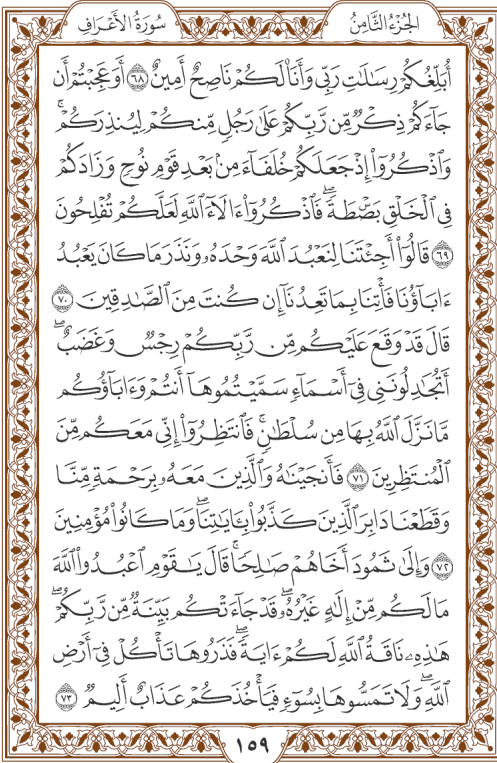 الجُزْءُ الثَّامِنُ
سُورَةُ الأَعْرَافِ
أُبَلِّغُكُمْ رِسَٰلَٰتِ رَبِّي وَأَنَا۠ لَكُمْ نَاصِحٌ أَمِينٌ ٦٨ أَوَعَجِبْتُمْ أَن
جَآءَكُمْ ذِكْرٌ مِّن رَّبِّكُمْ عَلَىٰ رَجُلٍ مِّنكُمْ لِيُنذِرَكُمْ ۚ
وَٱذْكُرُوٓا۟ إِذْ جَعَلَكُمْ خُلَفَآءَ مِنۢ بَعْدِ قَوْمِ نُوحٍ وَزَادَكُمْ
فِي ٱلْخَلْقِ بَصْۜطَةً ۖ فَٱذْكُرُوٓا۟ ءَالَآءَ ٱللَّهِ لَعَلَّكُمْ تُفْلِحُونَ
٦٩ قَالُوٓا۟ أَجِئْتَنَا لِنَعْبُدَ ٱللَّهَ وَحْدَهُۥ وَنَذَرَ مَا كَانَ يَعْبُدُ
ءَابَآؤُنَا فَأْتِنَا بِمَا تَعِدُنَآ إِن كُنتَ مِنَ ٱلصَّٰدِقِينَ ٧٠
قَالَ قَدْ وَقَعَ عَلَيْكُم مِّن رَّبِّكُمْ رِجْسٌ وَغَضَبٌ ۖ
أَتُجَٰدِلُونَنِي فِيٓ أَسْمَآءٍ سَمَّيْتُمُوهَآ أَنتُمْ وَءَابَآؤُكُم
مَّا نَزَّلَ ٱللَّهُ بِهَا مِن سُلْطَٰنٍ ۚ فَٱنتَظِرُوٓا۟ إِنِّي مَعَكُم مِّنَ
ٱلْمُنتَظِرِينَ ٧١ فَأَنجَيْنَٰهُ وَٱلَّذِينَ مَعَهُۥ بِرَحْمَةٍ مِّنَّا
وَقَطَعْنَا دَابِرَ ٱلَّذِينَ كَذَّبُوا۟ بِـَٔايَٰتِنَا ۖ وَمَا كَانُوا۟ مُؤْمِنِينَ
٧٢ وَإِلَىٰ ثَمُودَ أَخَاهُمْ صَٰلِحًا ۗ قَالَ يَٰقَوْمِ ٱعْبُدُوا۟ ٱللَّهَ
مَا لَكُم مِّنْ إِلَٰهٍ غَيْرُهُۥ ۖ قَدْ جَآءَتْكُم بَيِّنَةٌ مِّن رَّبِّكُمْ ۖ
هَٰذِهِۦ نَاقَةُ ٱللَّهِ لَكُمْ ءَايَةً ۖ فَذَرُوهَا تَأْكُلْ فِيٓ أَرْضِ
ٱللَّهِ ۖ وَلَا تَمَسُّوهَا بِسُوٓءٍ فَيَأْخُذَكُمْ عَذَابٌ أَلِيمٌ ٧٣
١٥٩